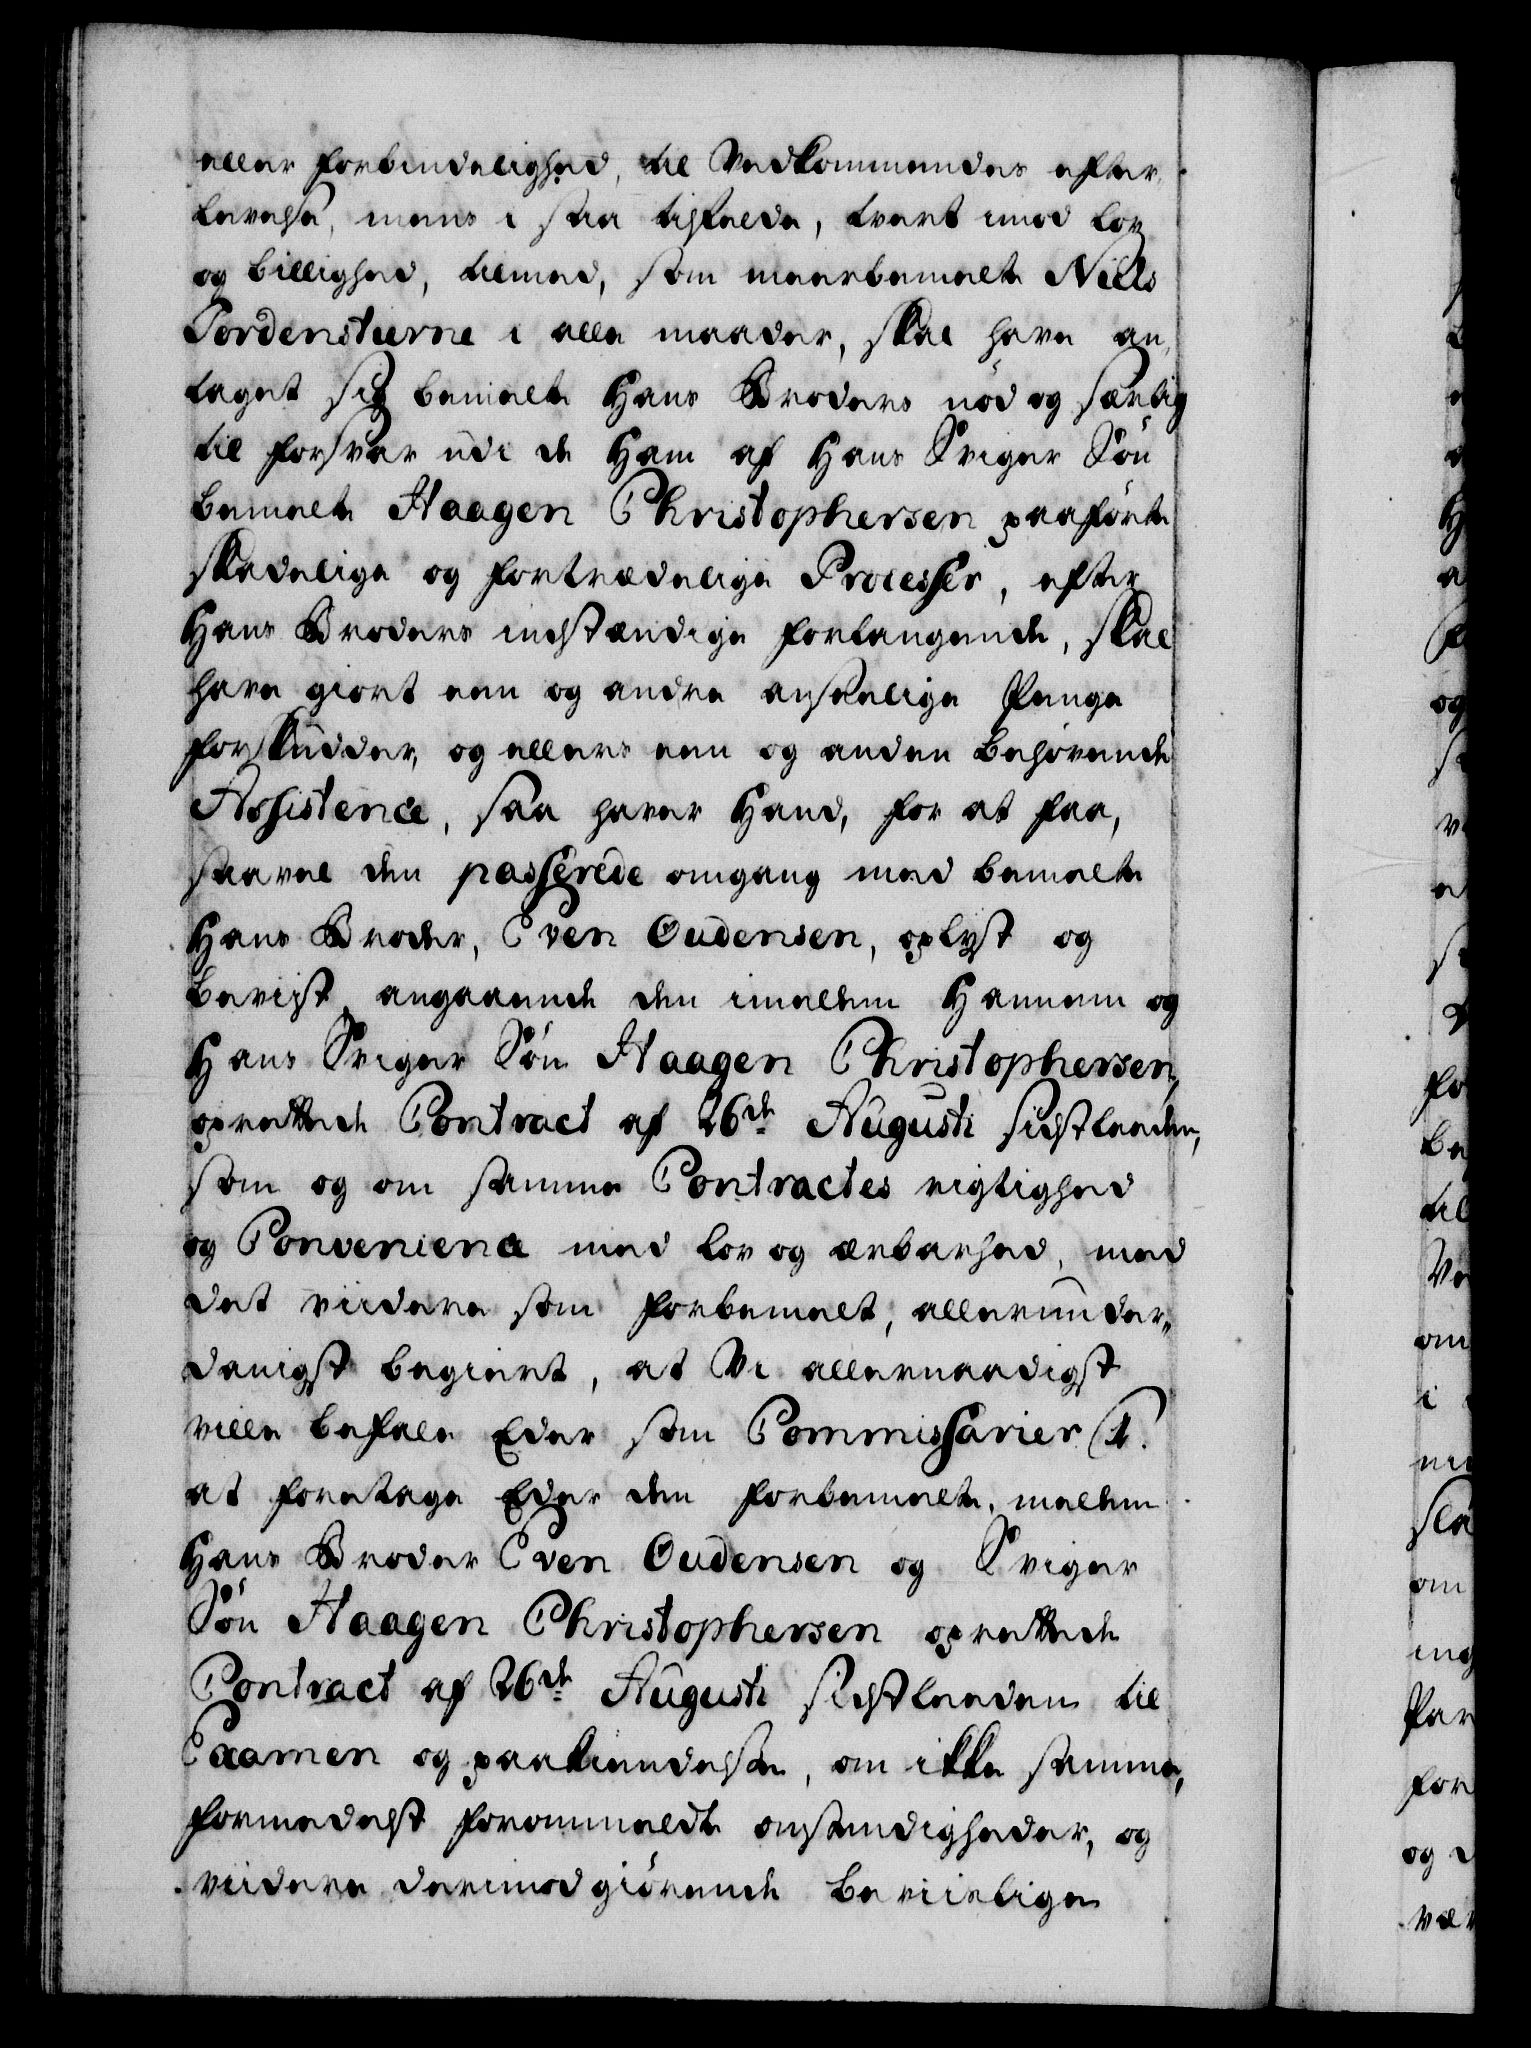 eller forbindelighed, til Vedkommendes efter¬
levelse, mens i saa tilfelde, tvert imod lov
og billighed, tilmed, som meerbemelte Niels
Tordenstierne i alle maader, skal have an¬
taget sig bemelte Hans Broders nød og særlig
til forsvar udi de Ham af Hans Sviger Søn
bemelte Haagen Christophersen paaførte
skadelige og fortrædelige Processer, efter
Hans Broders indstændige forlangende, skal
have giort een og andre anseelige Penge
forskudder, og ellers een og anden behøvende
Assistence, saa haver Hand, for at faa,
saavel den passerede omgang med bemelte
Hans Broder, Even Oudensen, oplyst og
beviist, angaaende den imellem Hannem og
Hans Sviger Søn Haagen Christophersen,
oprettede Contract af 26de Augusti sidstleeden,
som og om samme Contractes rigtighed
og Convenience med lov og ærbarhed, med
det viidere som forbemelt, allerunder¬
danigst begiert, at Vi allernaadigst
ville befale Eder som Commissarier
at foretage Eder den forbemelte, mellem
Hans Broder Even Oudensen og Sviger
Søn Haagen Christophersen oprettede
Contract af 26de Augusti sidstleeden til
Examen og paakiendelse, om ikke samme,
formedelst forommeldte omstendigheder, og
viidere derimod giørende beviislige